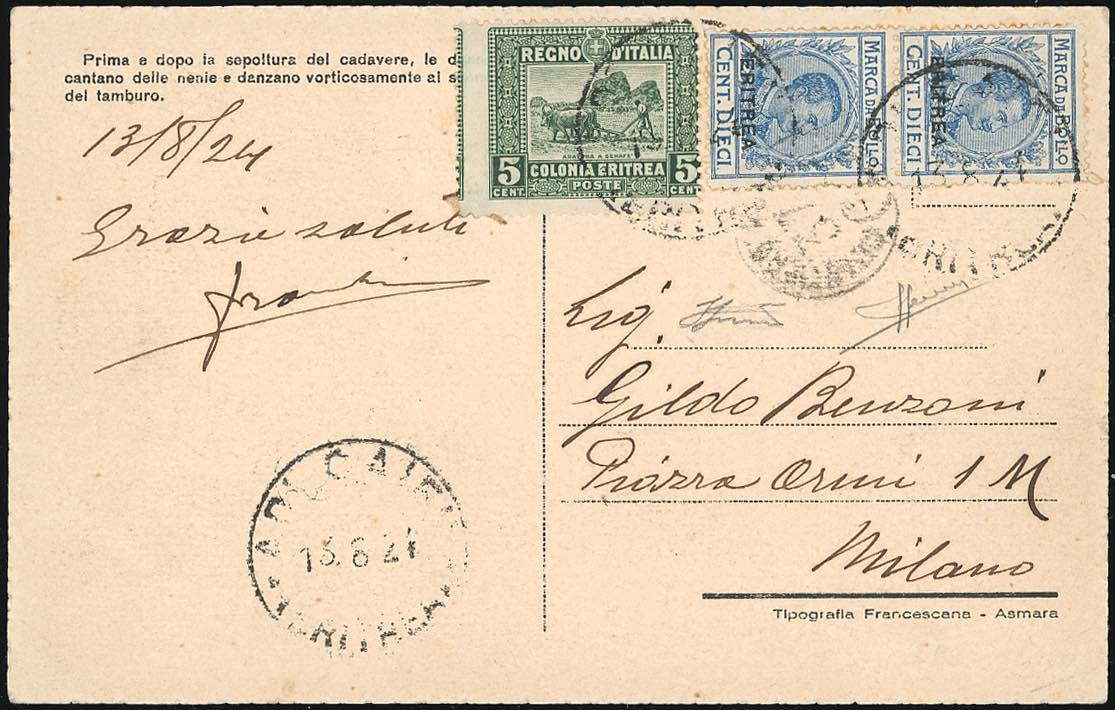 Prima e dopo la sepoltura del cadavere, le
cantano delle nenie e danzano vorticosamente al
del tamburo.
13/8/24
Grazie saluti
REGNO D'ITALIA
ARATURA A SENAFE
5 CENT. COLONIA ERITREA 5 CENT.
POSTE
MARCA DA BOLLO
ERITREA
CENT. DIECI
MARCA DA BOLLO
ERITREA
CENT. DIECI
ERITREA
Sig.
Gildo Benzoni
Piazza Orsini 1 M
Milano
ADI CAIEH
13.8.24
ERITREA
Tipografia Francescana - Asmara